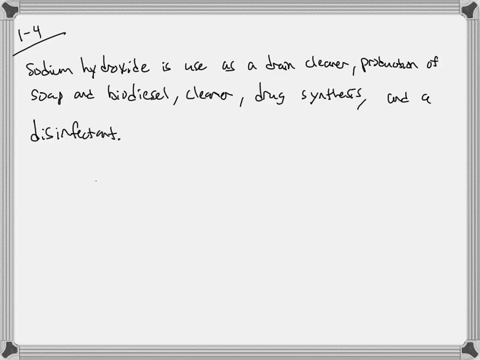 1-4
Sodium hydroxide is use as a drain cleaner, production of
soap and biodiesel, cleaner, drug synthesis, and a
disinfectant.